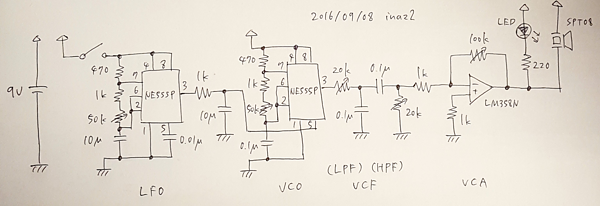 2016/09/08 inaz2
LED
SPT08
9V
470
1k
50k
10μ
7
6
2
4
8
NE555P
3
1
5
0.01μ
1k
10μ
470
1k
50k
0.1μ
7
6
2
4
8
NE555P
3
1
5
20k
0.1μ
0.1μ
20k
1k
100k
-
+
LM358N
1k
220
LFO
VCO
(LPF) (HPF)
VCF
VCA